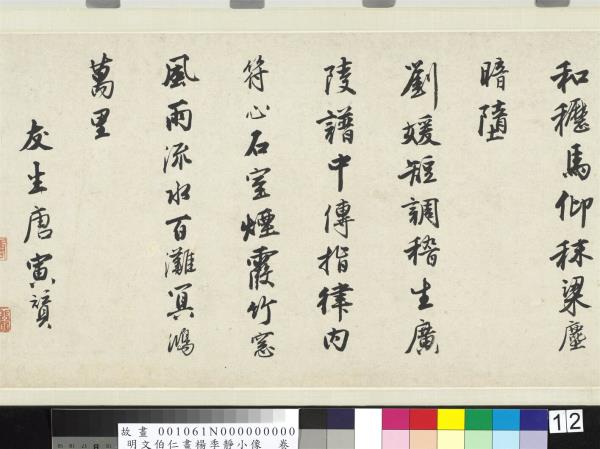 和穆馬仰秣梁塵
暗墮
劉媛短調嵇生廣
陵譜中傳指律內
符心石室煙霞竹窓
風雨流水百灘冥鴻
萬里
友生唐寅贊
故畫001061N000000000
明文伯仁畫楊季靜小像 卷
12